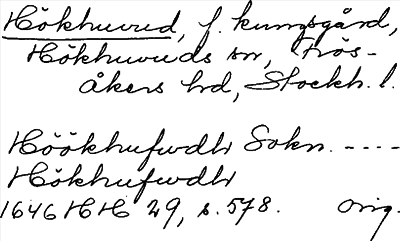 Hökhuvud, f. kungsgård,
Hökhuvuds sn, Frös-
åkers hd, Stockh. l.
Höökhufwdh Sokn. ----
Hökhufwdh
1646 HH 29, s. 578. orig.